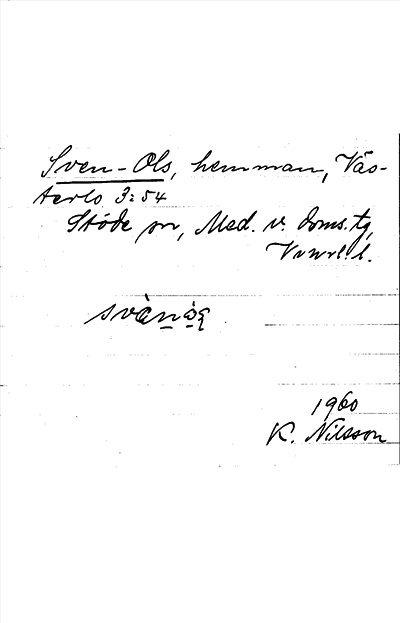 Sven-Ols, hemman, Väs-
terlo 3:54
Stöde sn, Med. v. doms. tg,
Vvnrl l.
svènòş
1960
K. Nilsson